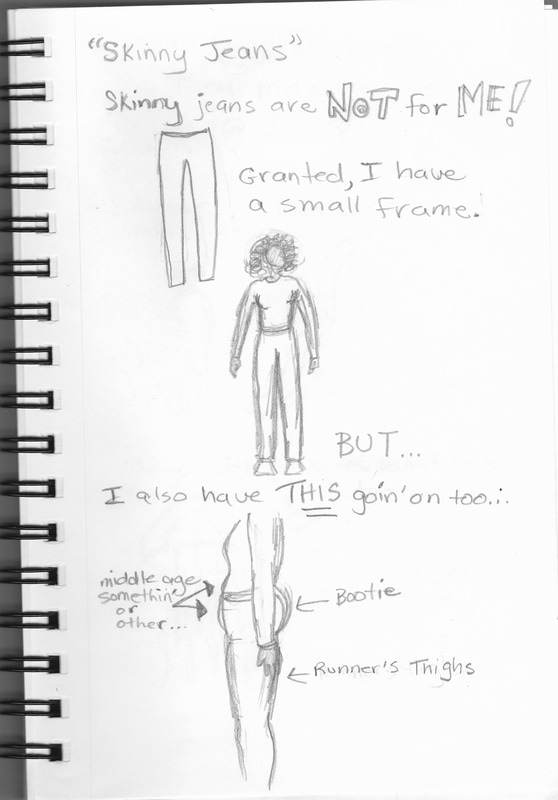 "Skinny Jeans"
Skinny jeans are NOT for ME!
Granted, I have
a small frame.
BUT...
I also have THIS goin' on too...
middle age
somethin'
or
other...
Bootie
Runner's Thighs